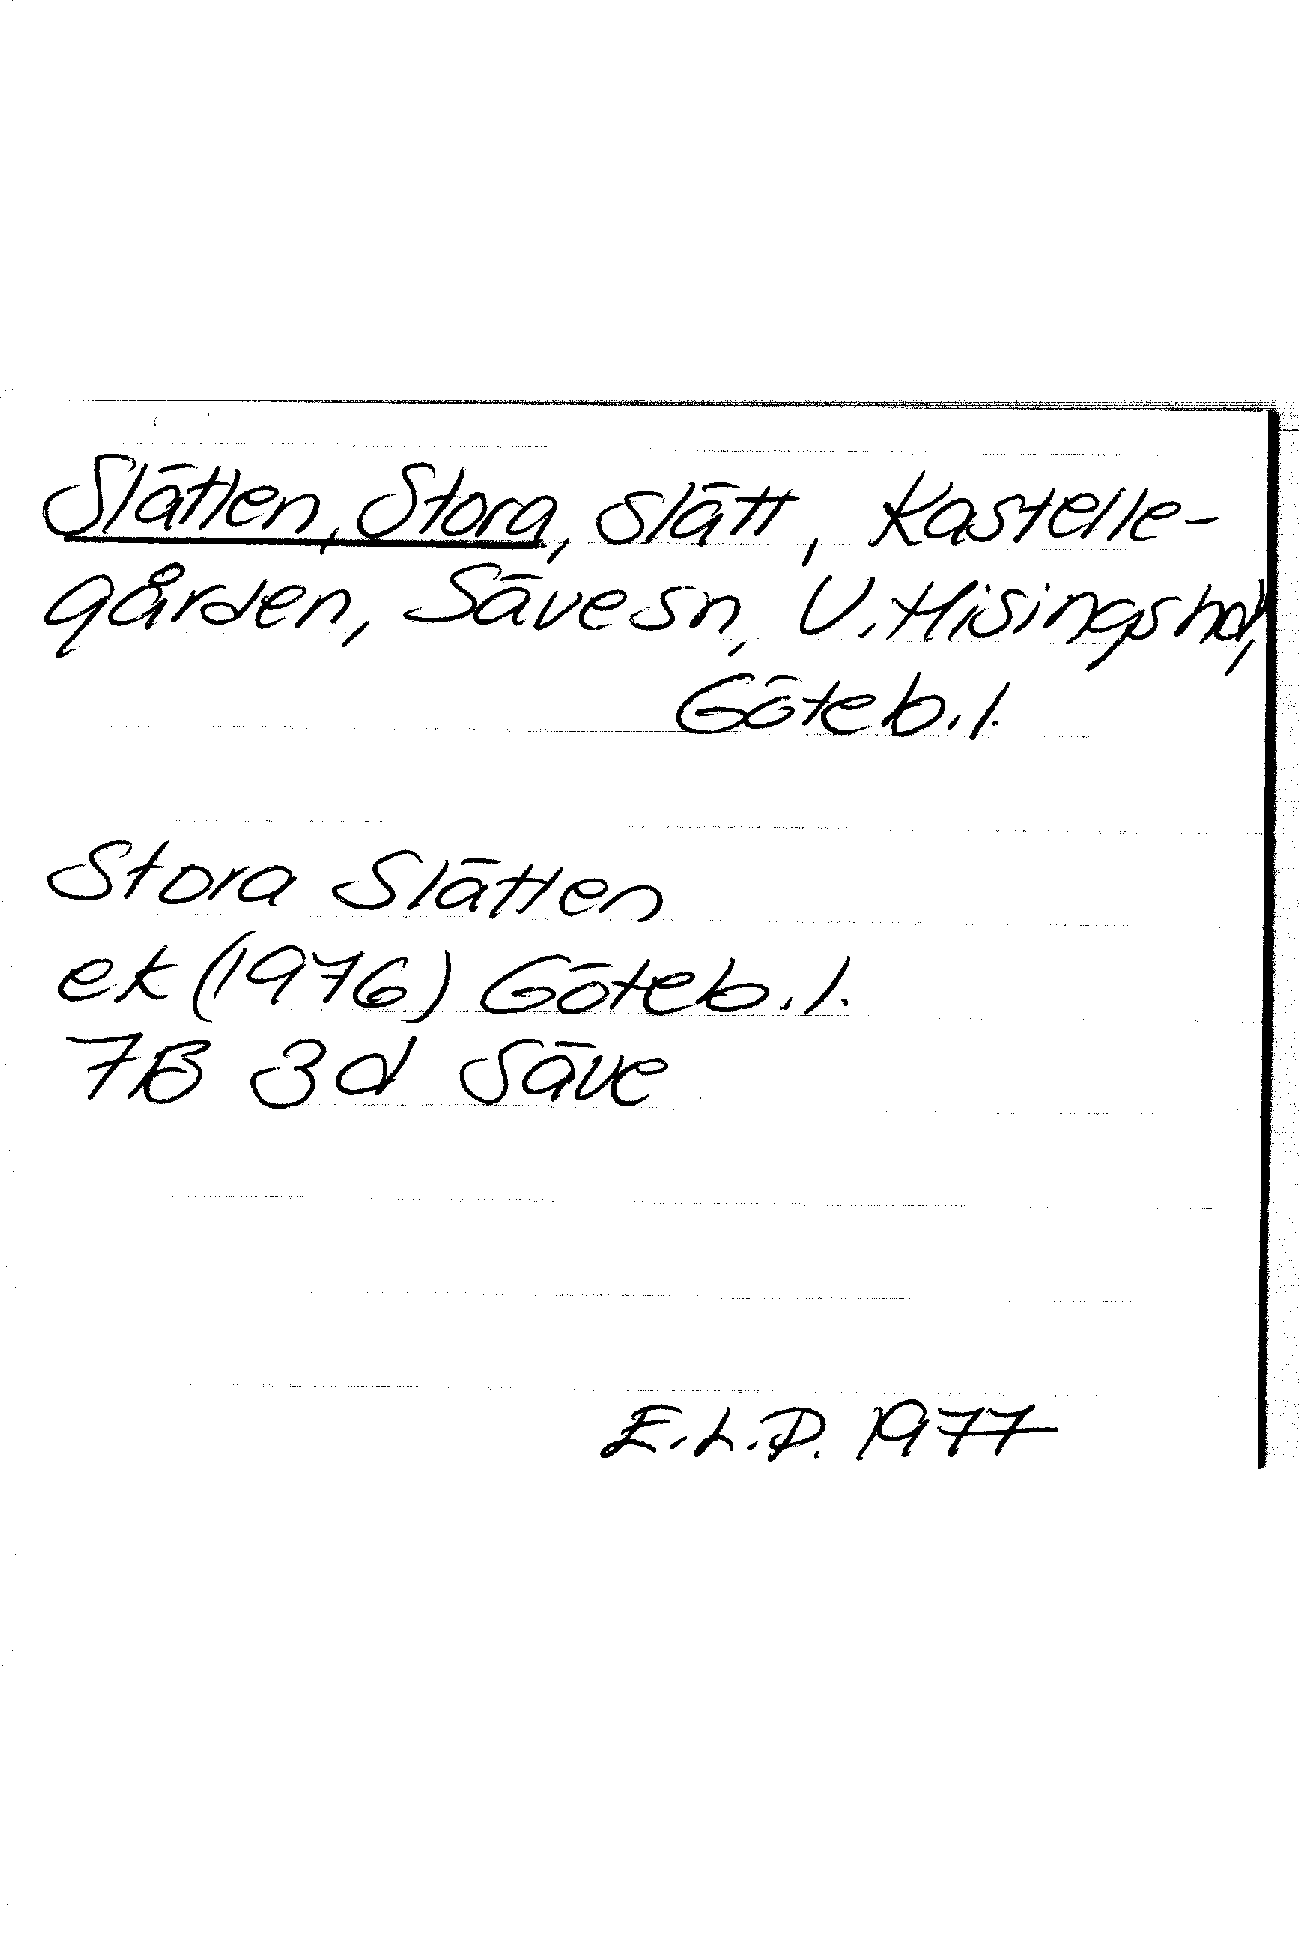 Slätten, Stora, slätt, Kastelle-
gården, Säve sn, V. Hisings hd,
Göteb. l.
Stora Slätten
ek (1976) Göteb. l.
7B 3d Säve
E.L.D. 1977